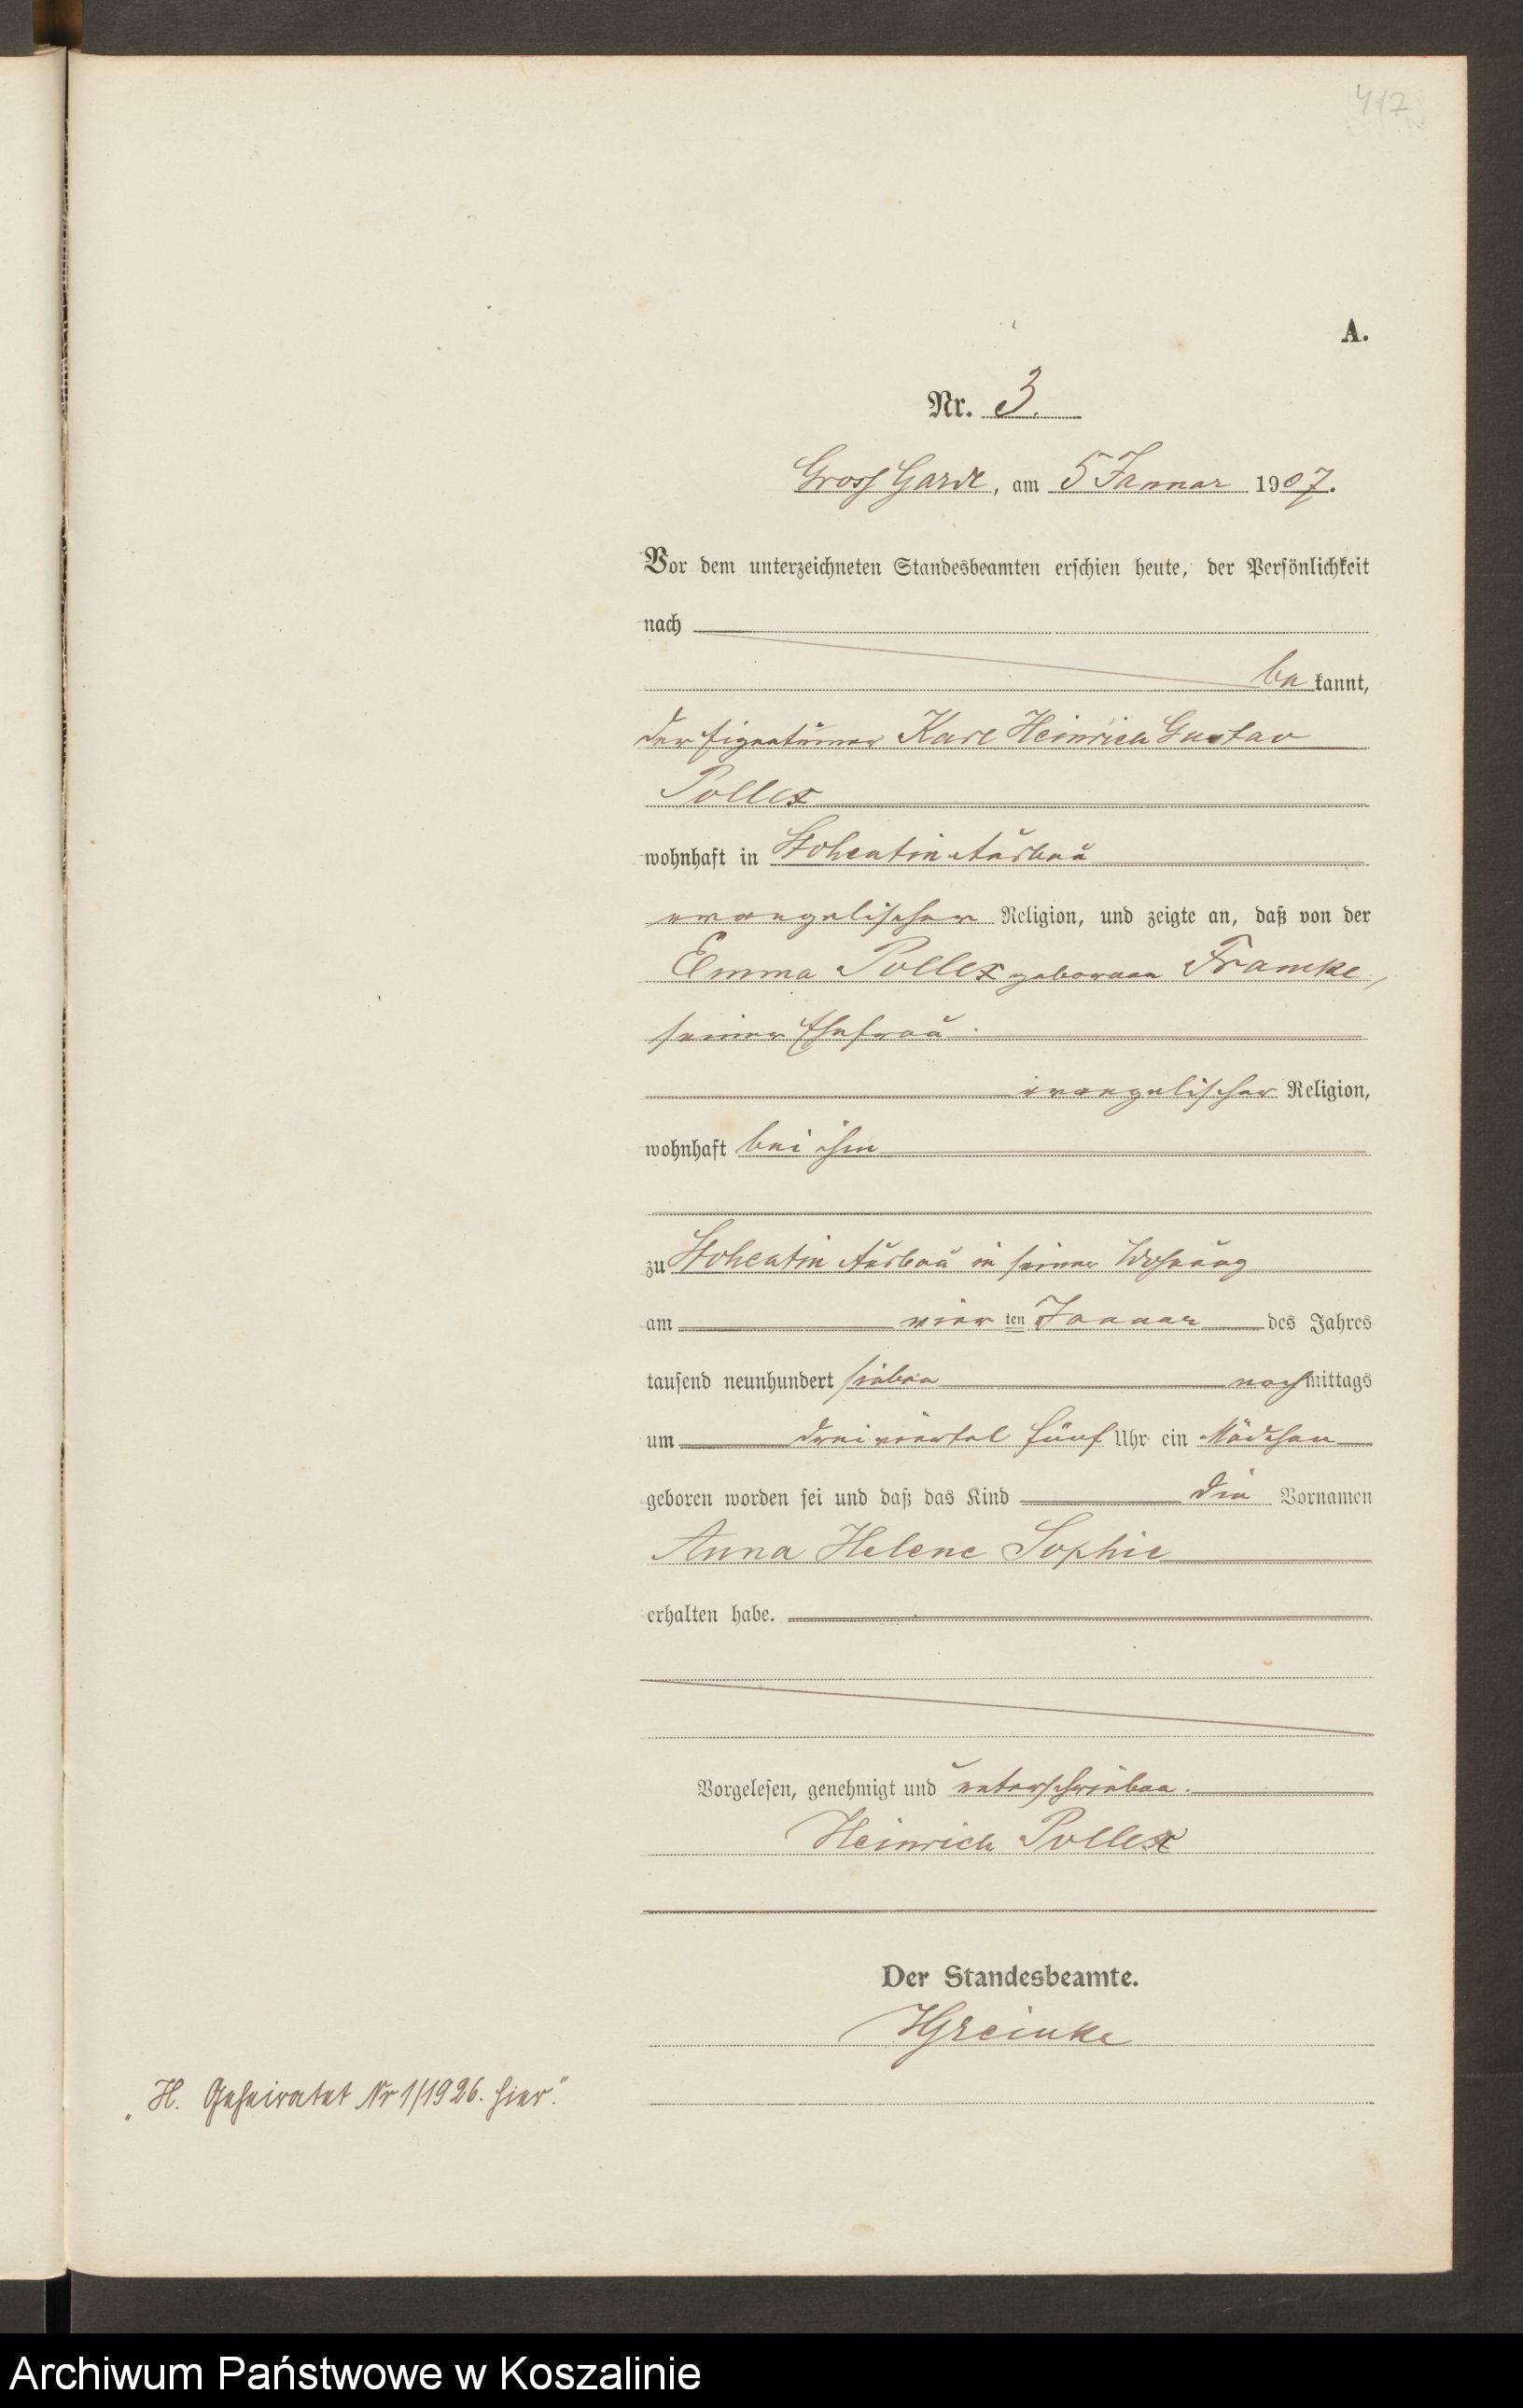 417
A.
Nr. 3.
Gross Garde, am 5 Januar 1907.
Vor dem unterzeichneten Standesbeamten erschien heute, der Persönlichkeit
nach
be kannt,
der Eigentümer Karl Heinrich Gustav
Pollex
wohnhaft in Stohentin Ausbau
evangelischer Religion, und zeigte an, daß von der
Emma Pollex geborenen Framke,
seiner Ehefrau
evangelischer Religion,
wohnhaft bei ihm
zu Stohentin Ausbau in seiner Wohnung
am vier ten Januar des Jahres
tausend neunhundert sieben nachmittags
um dreiviertel fünf Uhr ein Mädchen
geboren worden sei und daß das Kind die Vornamen
Anna Helene Sophie
erhalten habe.
Vorgelesen, genehmigt und unterschrieben.
Heinrich Pollex
Der Standesbeamte.
HGreinke
„H. Geheiratet Nr 1/1926. hier."
Archiwum Państwowe w Koszalinie